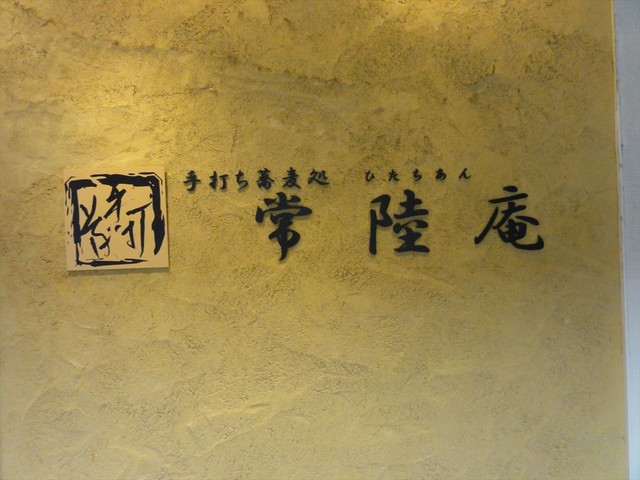 手打ち蕎麦処
ひたちあん
常陸庵